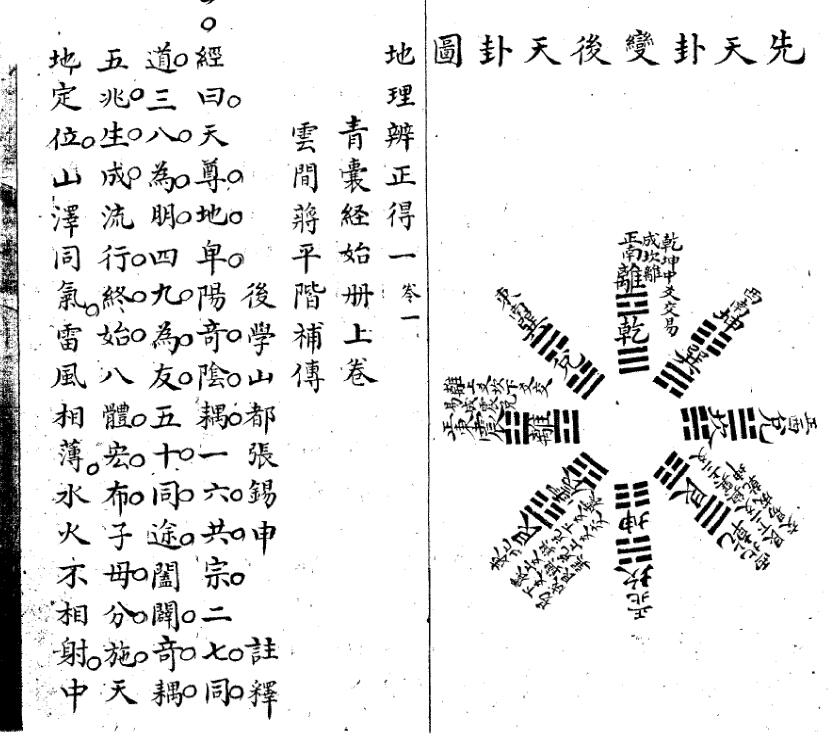 先天卦變後天卦圖
乾坤中爻交易
成坎離
正南
離
乾
坤
巽
兌
離
坎
兌
正西
艮
坤
坎
正北
艮
地理辨正得一 卷一
青囊経始册上卷
雲間蔣平階補傳
後學山都張錫申 註釋
經曰天尊地卑陽奇陰耦一六共宗二七同
道三八為明四九為友五十同途闔闢奇耦
五兆生成流行終始八體宏布子母分施天
地定位山澤同氣雷風相薄水火不相射中